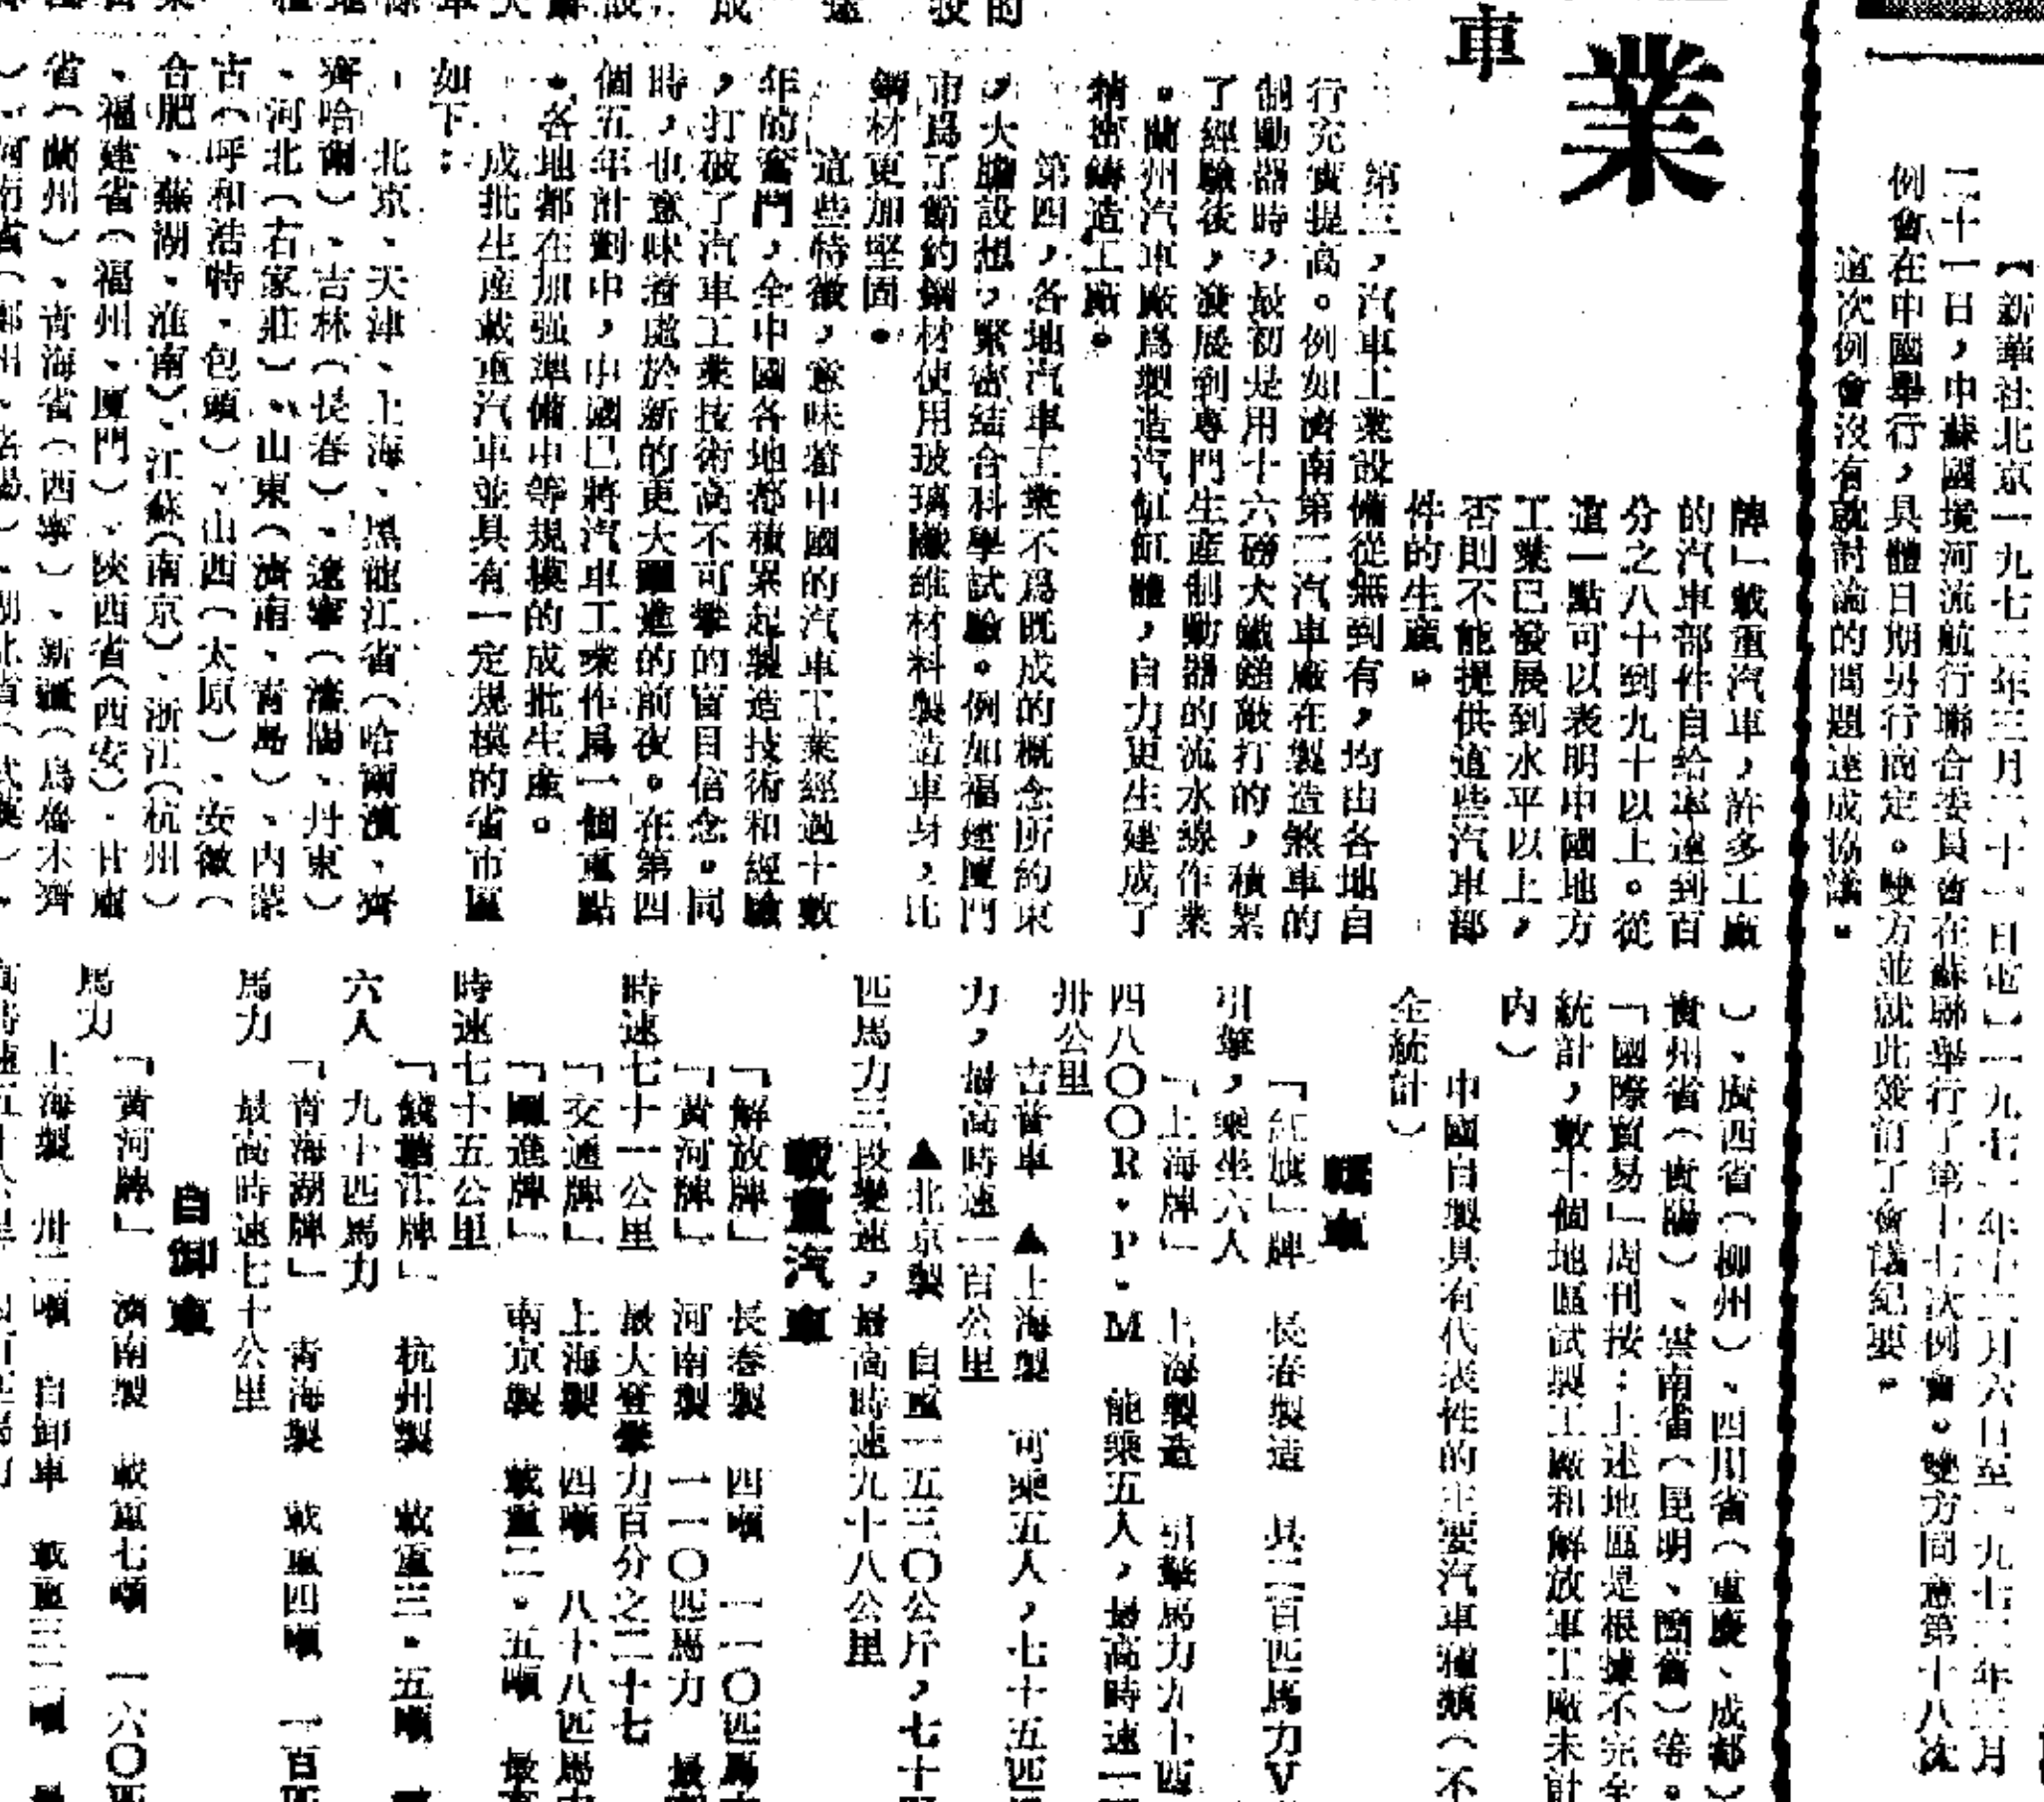 業
車
【新華社北京一九七二年三月二十一日電】一九七一年十二月六日至一九七二年三月
二十一日，中蘇國境河流航行聯合委員會在蘇聯舉行了第十七次例會。雙方同意第十八次
例會在中國舉行，具體日期另行商定。雙方並就此簽訂了會議紀要。
這次例會沒有就討論的問題達成協議。
牌」載重汽車，許多工廠
的汽車部件自給率達到百
分之八十到九十以上。從
這一點可以表明中國地方
工業已發展到水平以上，
否則不能提供這些汽車部
件的生產。
第三，汽車工業設備從無到有，均由各地自
行充實提高。例如濟南第二汽車廠在製造煞車的
制動器時，最初是用十六磅大鐵鎚敲打的，積累
了經驗後，發展到專門生產制動器的流水線作業
。蘭州汽車廠爲製造汽缸缸體，自力更生建成了
精密鑄造工廠。
第四，各地汽車工業不爲既成的概念所約束
，大膽設想，緊密結合科學試驗。例如福建廈門
市爲了節約鋼材使用玻璃纖維材料製造車身，比
鋼材更加堅固。
這些特徵，意味着中國的汽車工業經過十數
年的奮鬥，全中國各地都積累起製造技術和經驗
，打破了汽車工業技術高不可攀的盲目信念。同
時，也意味着處於新的更大躍進的前夜。在第四
個五年計劃中，中國已將汽車工業作爲一個重點
。各地都在加强準備中等規模的成批生產。
成批生産載重汽車並具有一定規模的省市區
如下：
北京、天津、上海、黑龍江省（哈爾濱、齊
齊哈爾）、吉林（長春）、遼寧（瀋陽、丹東）
、河北（石家莊）、山東（濟南、青島）、內蒙
古（呼和浩特、包頭）、山西（太原）、安徽（
合肥、蕪湖、淮南）、江蘇（南京）、浙江（杭州）
、福建省（福州、厦門）、陝西省（西安）、甘肅
省（蘭州）、青海省（西寧）、新疆（烏魯木齊
）、廣西省（柳州）、四川省（重慶、成都）
貴州省（貴陽）、雲南省（昆明、箇舊）等。
「國際貿易」周刊按：上述地區是根據不完全
統計，數十個地區試製工廠和解放軍工廠未計
內）
中國自製具有代表性的主要汽車種類（不
全統計）
轎車
「紅旗」牌　長春製造　具二百匹馬力V
引擎，乘坐六人
「上海牌」　上海製造　引擎馬力九十匹
四八〇〇R・P・M　能乘五人，最高時速一
卅公里
吉普車　▲上海製　可乘五人，七十五匹
力，最高時速一百公里
▲北京製　自重一五三〇公斤，七十
匹馬力三段變速，最高時速九十八公里
載重汽車
「解放牌」　長春製　四噸　一一〇匹馬
「黃河牌」　河南製　一一〇匹馬力　最
時速七十一公里　最大登攀力百分之二十七
「交通牌」　上海製　四噸　八十八匹馬
「躍進牌」　南京製　載重二・五噸　最
時速七十五公里
「錢塘江牌」　杭州製　載重三・五噸
六人　九十匹馬力
「青海湖牌」　青海製　載重四噸　一百匹
馬力　最高時速七十公里
自卸車
「黃河牌」　濟南製　載重七噸　一六〇匹
馬力
上海製　卅二噸　自卸車　載重三二噸